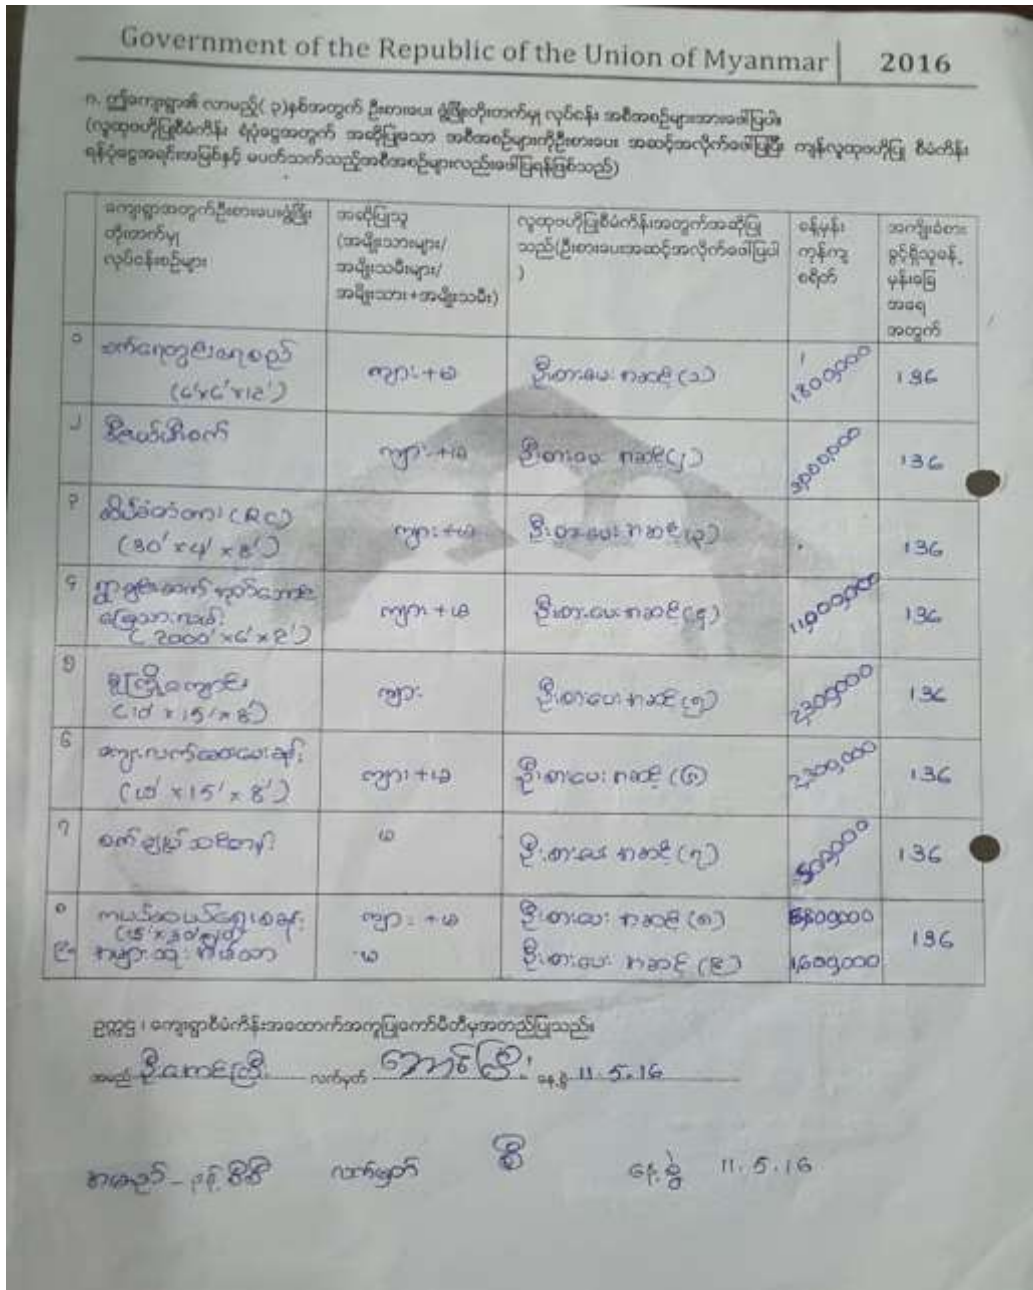 Government of the Republic of the Union of Myanmar | 2016
ဂ. ဤကျေးရွာ၏ လာမည့်( ၃)နှစ်အတွက် ဦးစားပေး ဖွံ့ဖြိုးတိုးတက်မှု လုပ်ငန်း အစီအစဉ်များအားဖော်ပြပါ။
(လူထုဗဟိုပြုစီမံကိန်း ရံပုံငွေအတွက် အဆိုပြုသော အစီအစဉ်များကိုဦးစားပေး အဆင့်အလိုက်ဖော်ပြပြီး ကျန်လူထုဗဟိုပြု စီမံကိန်း
ရန်ပုံငွေအရင်းအမြစ်နှင့် မပတ်သက်သည့်အစီအစဉ်များလည်းဖော်ပြရန်ဖြစ်သည်)
ကျေးရွာအတွက်ဦးစားပေးဖွံ့ဖြိုး
တိုးတက်မှု
လုပ်ငန်းစဉ်များ
အဆိုပြုသူ
(အမျိုးသားများ/
အမျိုးသမီးများ/
အမျိုးသား+အမျိုးသမီး)
လူထုဗဟိုပြုစီမံကိန်းအတွက်အဆိုပြု
သည်(ဦးစားပေးအဆင့်အလိုက်ဖော်ပြပါ
)
ခန့်မှန်း
ကုန်ကျ
စရိတ်
အကျိုးခံစား
ခွင့်ရှိသူခန့်
မှန်းခြေ
အရေ
အတွက်
၁ စက်ရေတွင်း
(6'x6'x12') ကျား+မ ဦးစားပေး အဆင့်(၁) 1800,000 136
၂ ကျား+မ ဦးစားပေး အဆင့်(၂) 3,000,000 136
၃ (RC)
(30'x4'x8') ကျား+မ ဦးစားပေး အဆင့်(၃) 136
၄
(2000'x6'x2') ကျား+မ ဦးစားပေး အဆင့်(၄) 11,000,000 136
၅ မူကြိုကျောင်း
(10'x15'x8') ကျား ဦးစားပေး အဆင့်(၅) 2,300,000 136
၆ ကျေးလက်ဆေးပေးခန်း
(10'x15'x8') ကျား+မ ဦးစားပေး အဆင့်(၆) 2,300,000 136
၇ စက်ချုပ်သင်တန်း မ ဦးစားပေး အဆင့်(၇) 500,000 136
၈ ကျား+မ ဦးစားပေး အဆင့်(၈)
၉ အများသုံး အိမ်သာ မ ဦးစားပေး အဆင့်(၉) 1,600,000 136
ဥက္ကဋ္ဌ ၊ ကျေးရွာစီမံကိန်းအထောက်အကူပြုကော်မီတီမှအတည်ပြုသည်။
အမည် ဦးအောင်ကြီး လက်မှတ် အောင်ကြီး နေ့စွဲ 11.5.16
အမည် - လက်မှတ် စီ နေ့စွဲ 11.5.16